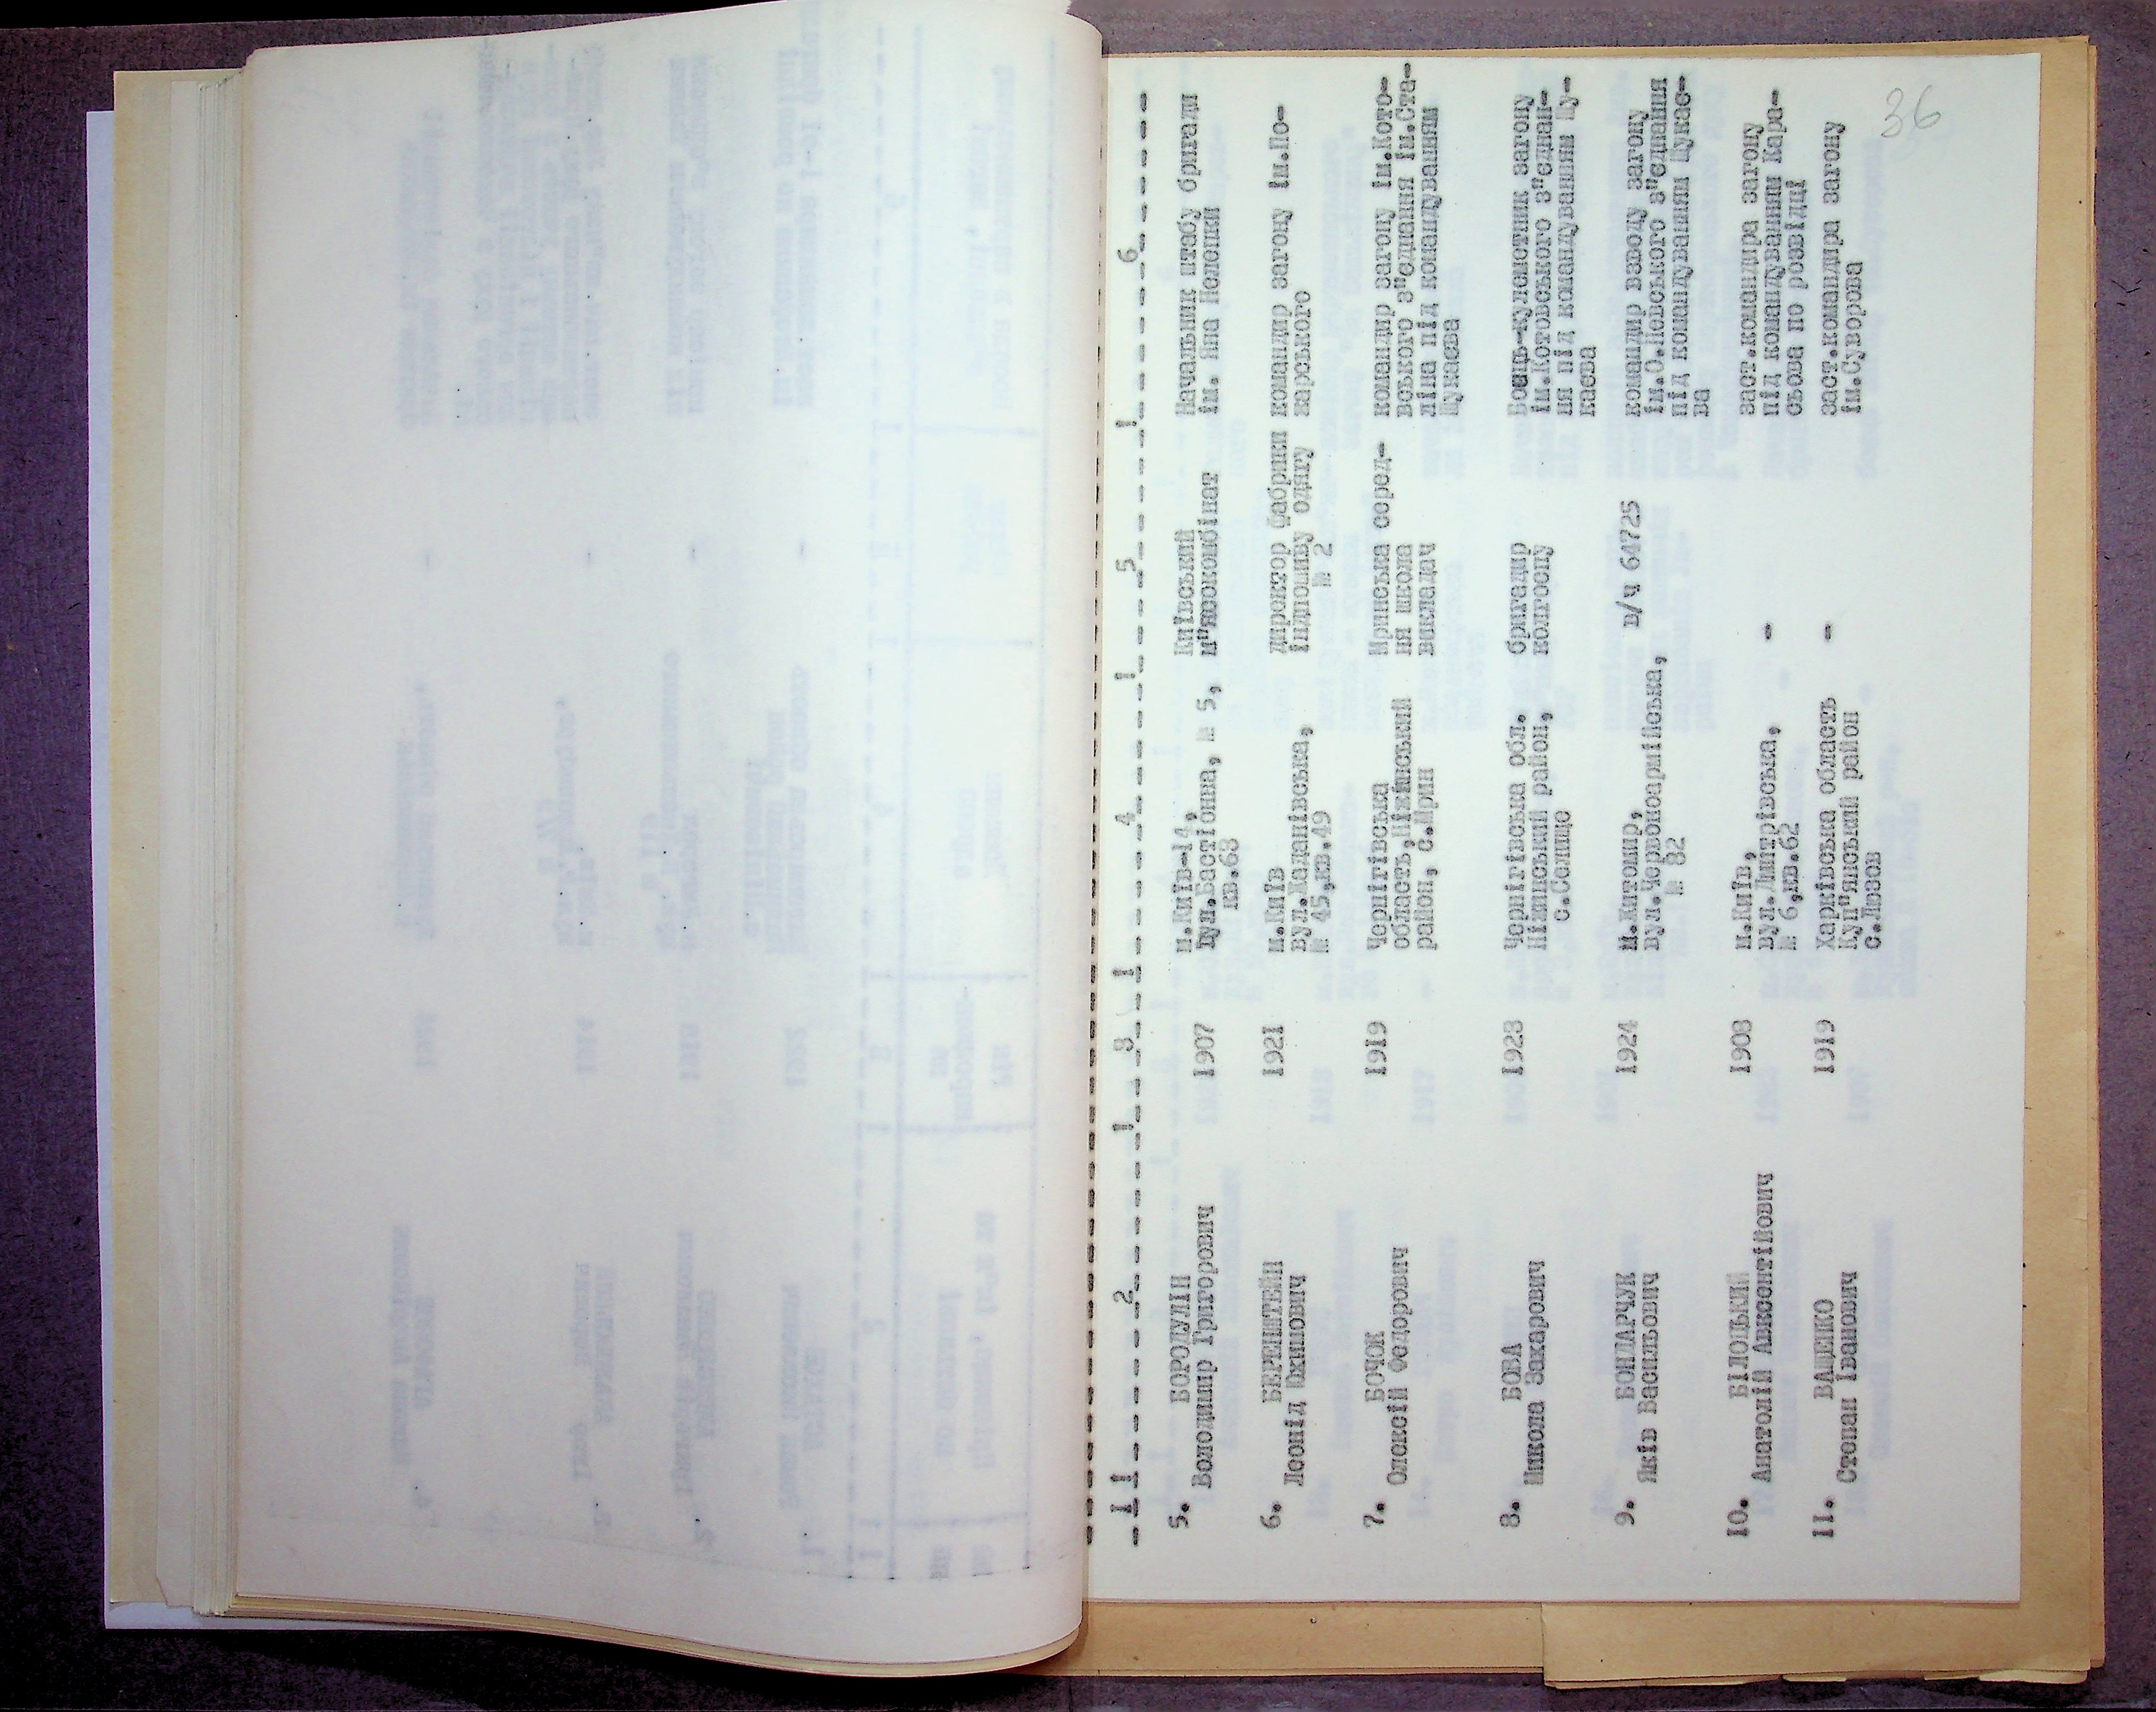 36
1 ! 2 ! 3 ! 4 ! 5 ! 6
5. БОРОДУЛІН
Володимир Григорович
1907
м.Київ-14,
вул.Бастіонна, № 5,
кв.63
Київський
м"ясокомбінат
Начальник штабу бригади
ім. Яна Налепки
6. БЕРЕНШТЕЙН
Леонід Юхимович
1921
м.Київ
вул.Жаданівська,
№ 45,кв.49
директор фабрики
індпошиву одягу
№ 2
командир загону ім.По-
жарського
7. БОЧОК
Олексій Федорович
1919
Чернігівська
область,Ніжинський
район, с.Мрин
Мринська серед-
ня школа
викладач
командир загону ім.Кото-
вського з"єднання ім.Ста-
ліна під командуванням
Шукаєва
8. БОВА
Микола Захарович
1923
Чернігівська обл.
Ніжинський район,
с.Селище
бригадир
колгоспу
Боєць-кулеметник загону
ім.Котовського з"єднан-
ня під командуванням Шу-
каєва
9. БОНДАРЧУК
Яків Васильович
1924
м.Житомир,
вул.Червоноармійська,
№ 82
в/ч 64725
командир взводу загону
ім.О.Невського з"єднання
під командуванням Шукає-
ва
10. БІЛОЦЬКИЙ
Анатолій Авксентійович
1908
м.Київ,
вул.Дмитрівська,
№ 6,кв.62
-
заст.командира загону
під командуванням Кара-
сьова по розвідці
11. ВАЩЕНКО
Степан Іванович
1919
Харківська область
Куп"янський район
с.Лозов
-
заст.командира загону
ім.Суворова